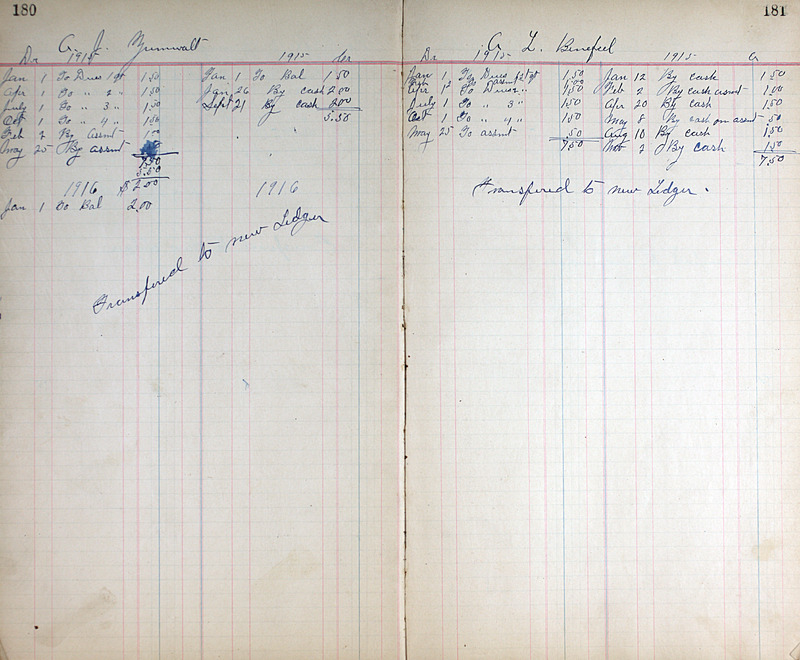 180
A. J. Zumwalt
Dr 1915 1915 Cr
Jan 1 To Dues 1 qt 1 50 Jan 1 To Bal 1 50
Apr 1 To " 2 " 1 50 Jan 26 By cash 2 00
July 1 To " 3 " 1 50 Sept 21 By cash 2 00
Oct 1 To " 4 " 1 50 5.50
Feb 2 By Assmt 1 00
May 25 By assmt
7 50
5.50
1916 $ 2 00 1916
Jan 1 To Bal 2.00
Transfered to new Ledger
181
A. L. Benefeel
Dr 1915 1915 Cr
Jan 1 To Dues 1st qt 1 50 Jan 12 By cash 1 50
To assmt 1 00 Feb 2 By cash assmt 1 00
Apr 1 To Dues 2 " 1 50 Apr 20 By cash 1 50
July 1 To " 3 " 1 50 May 8 By cash on assmt 50
Oct 1 To " 4 " 1 50 Aug 10 By cash 1 50
May 25 To assmt 50 Nov 2 By cash 1 50
7 50 7.50
Transfered to new Ledger.